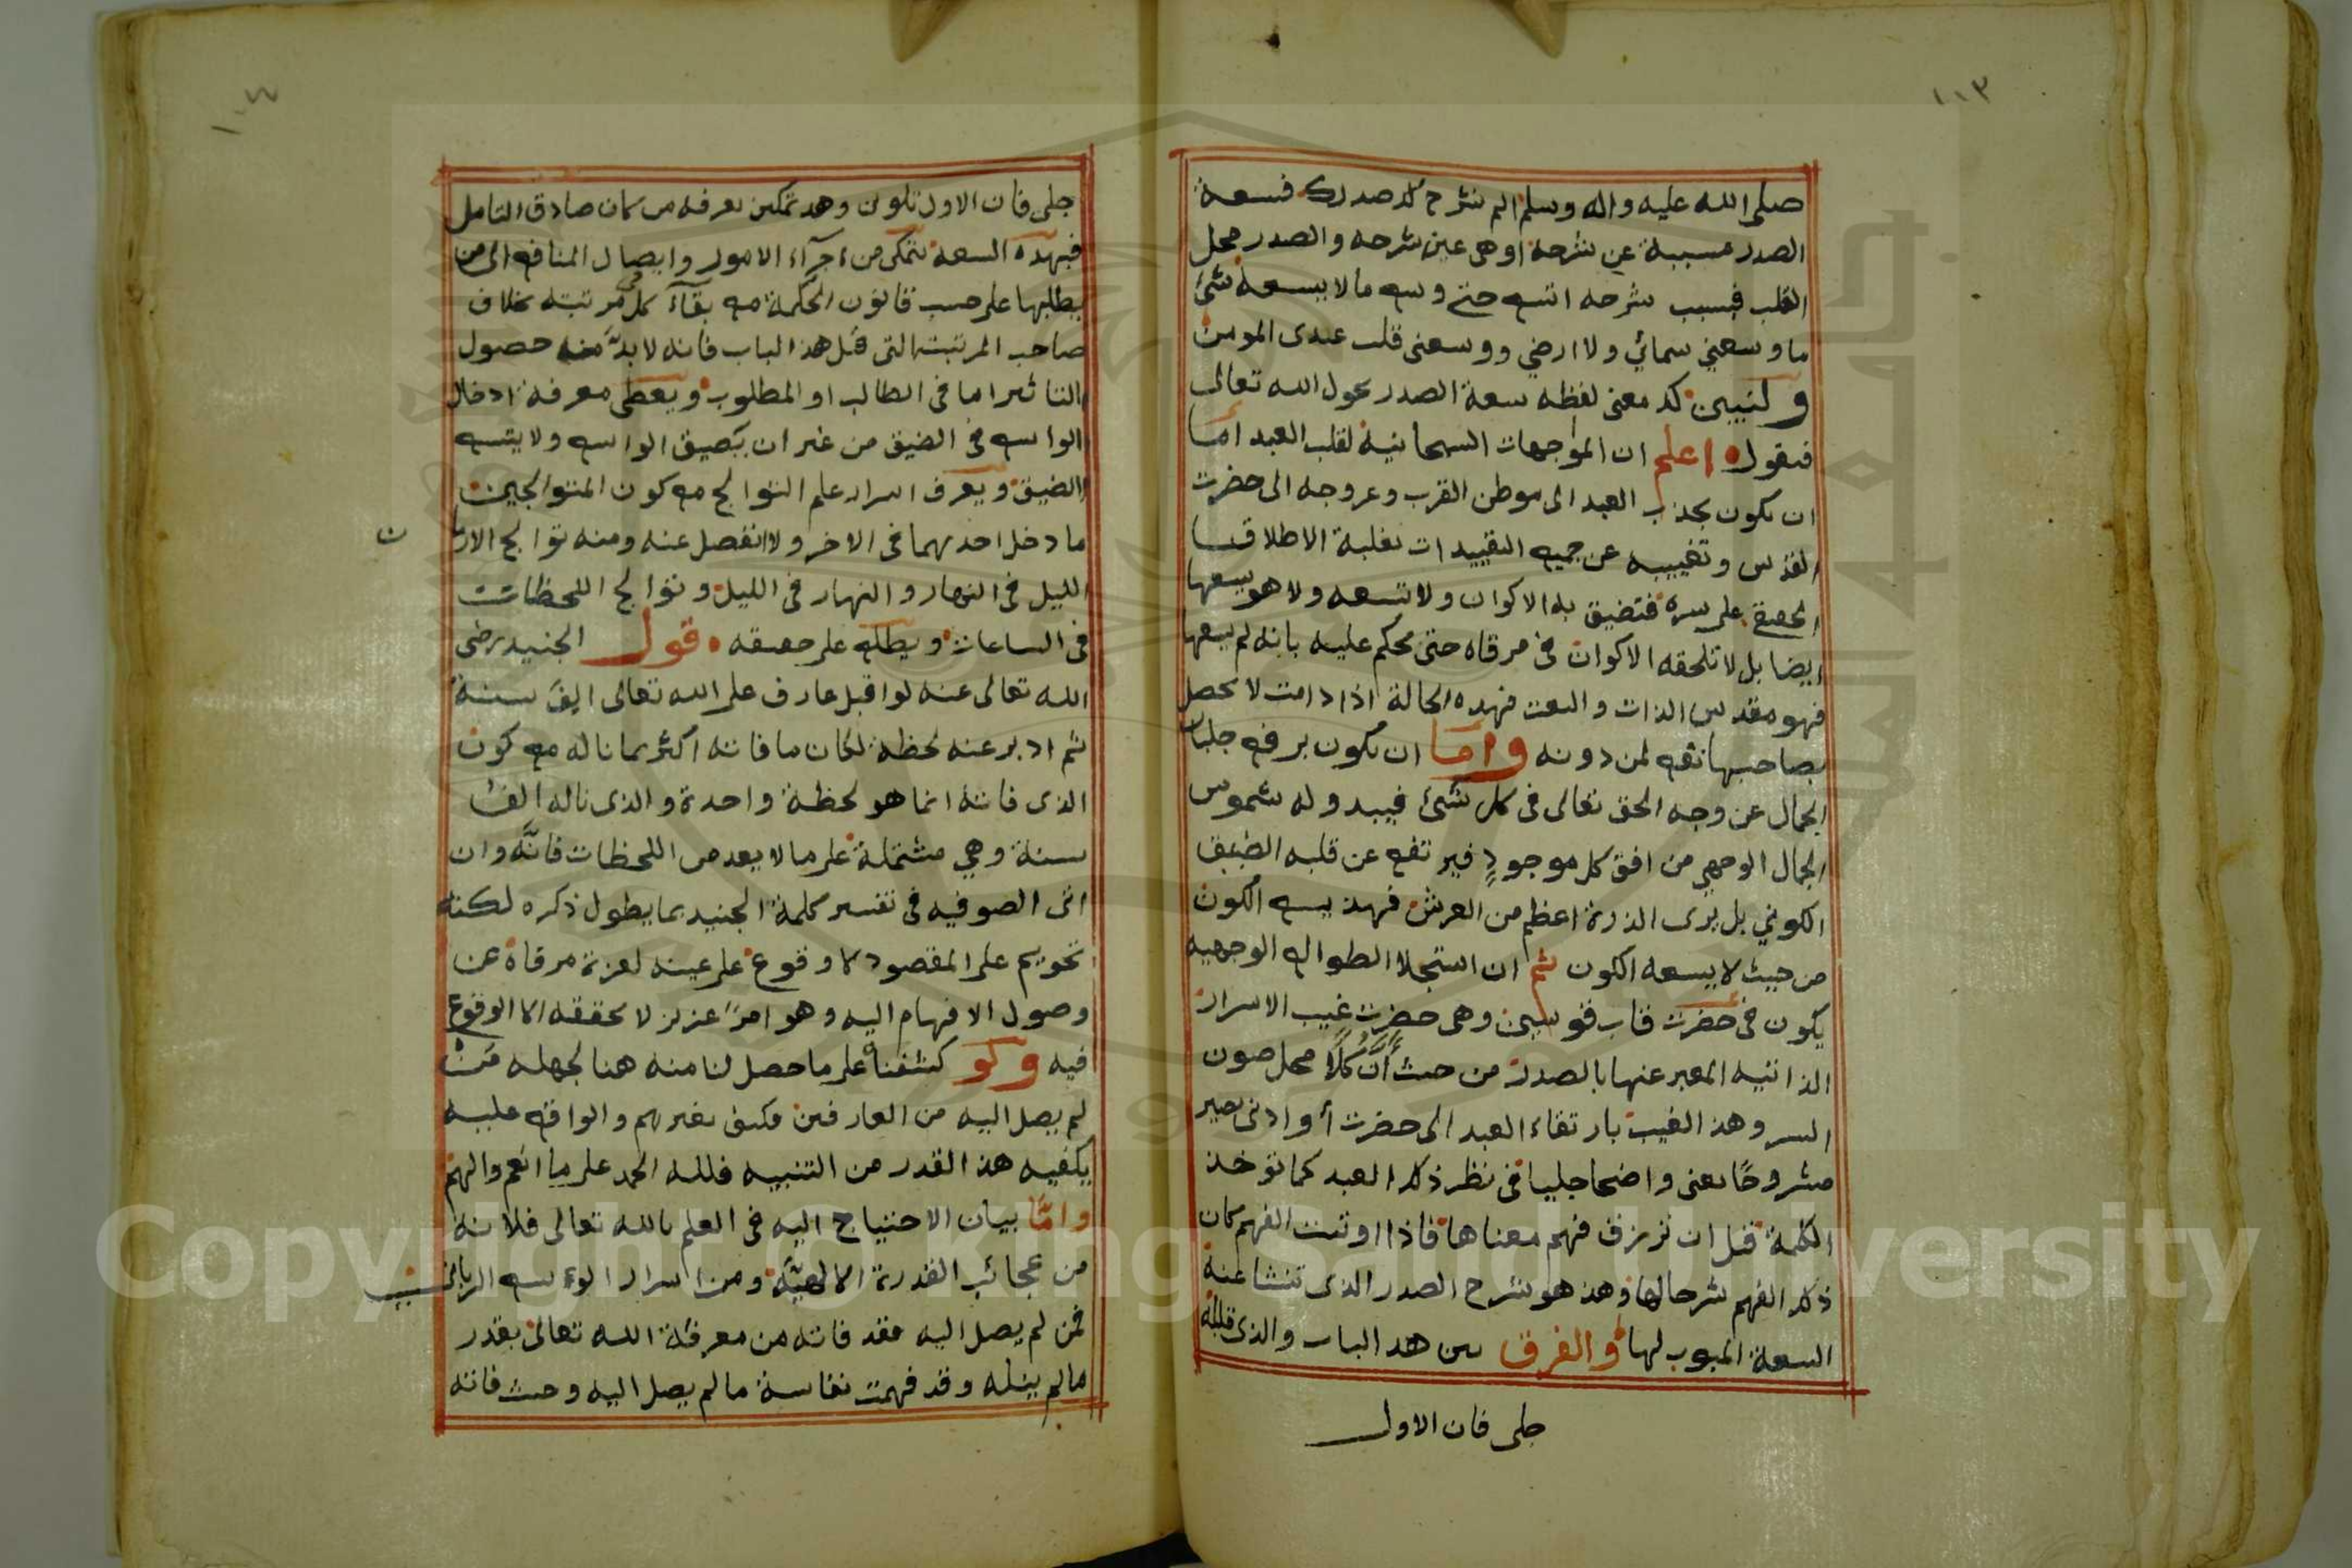 ١١٣
صلى الله عليه واله وسلم الم نشرح لك صدرك فسعة
الصدر مسببة عن شرحه اوهى عين شرحه والصدر محل
القلب فبسبب شرحه اتسع حتى وسع مالا يسعه شئ
ما وسعني سمائي ولا ارضي ووسعنى قلب عبدى المومن
ولنبين لك معنى لفظه سعة الصدر بحول الله تعالى
فنقول اعلم ان المواجهات السبحانية لقلب العبد اما
ان يكون بجذب العبد الى موطن القرب وعروجه الى حضرت
القدس وتغييبه عن جميع التقييدات بغلبة الاطلاق
الحقيقي على سره فتضيق به الاكوان ولا تسعه ولا هو يسعها
ايضا بل لا تلحقه الاكوان فى مرقاه حتى محكم عليه بانه لم يسعها
فهو مقدس الذات والنعت فهذه الحالة اذا دامت لا يحصل
بصاحبها نفع لمن دونه واما ان يكون برفع جلباب
الجمال عن وجه الحق تعالى فى كل شئ فيبدو له شموس
الجمال الوجهي من افق كل موجودٍ فيرتفع عن قلبه الضيق
الكوني بل يرى الذرة اعظم من العرش فهذ يسع الكون
من حيث لا يسعه الكون ثم ان استجلا الطوالع الوجهيه
يكون فى حضرت قاب قوسين وهى حضرت غيب الاسرار
الذاتيه المعبر عنها بالصدر من حيث أنَّ كُلًّا محل صون
السر وهذ الغيب بارتقاء العبد الى حضرت أو ادنى يصير
مشروحًا يعنى واضحا جليا فى نظر ذلك العبد كما توخذ
الكلمة قبل ان ترزق فهم معناها فاذا اوتيت الفهم كان
ذلك الفهم شرحا لها وهذ هو شرح الصدر الذى تنشا عنه
السعة المبوب لها والفرق بين هذ الباب والذى قبله
جلى فان الاول
١٠٤
جلى فان الاول تلوين وهذ تمكين يعرفه من كان صادق التامل
فبهذه السعة يتمكن من اجرآء الامور وايصال المنافع الى من
يطلبها على حسب قانون الحكمة مع بقآء كل فى مرتبته بخلاف
صاحب المرتبته التى قبل هذ الباب فانه لا بدَّ معه حصول
التاثير اما فى الطالب او المطلوب ويعطى معرفة ادخال
الواسع فى الضيق من غير ان يَضيق الواسع ولا يتسع
الضيق ويعرف اسرار علم التوالج مع كون المتوالجين
ما دخل احدهما فى الاخر ولا انفصل عنه ومنه توالج
ن
الليل فى النهار والنهار فى الليل وتوالج اللحظات
فى الساعات ويطلع على حقيقه قول الجنيد رضى
الله تعالى عنه لو اقبل عارف على الله تعالى الف سنة
ثم ادبر عنه لحظة لكان ما فاته اكثر مما ناله مع كون
الذى فاته انما هو لحظة واحدة والذى ناله الف
سنة وهي مشتملة على مالا يعد من اللحظات فانَّه وان
اتى الصوفيه فى تفسير كلمة الجنيد بما يطول ذكره لكنه
تحويم على المقصود لا وقوع على عينه لعزة مرقاة عن
وصول الافهام اليه وهو امرٌ عزيز لا يحققه الا الوقوع
فيه ولو كشفنا على ما حصل لنا منه هنا لجهله من
لم يصل اليه من العارفين فكيف بغيرهم والواقع عليه
يكفيه هذ القدر من التنبيه فلله الحمد على ما انعم والهم
وامّا بيان الاحتياج اليه فى العلم بالله تعالى فلانه
من عجائب القدرة الالهيّة ومن اسرار الوسع الربانى
فمن لم يصل اليه فقد فاته من معرفة الله تعالى بقدر
مالم ينله وقد فهمت نفاسة ما لم يصل اليه وحيث فاته
Copyright © King Saud University